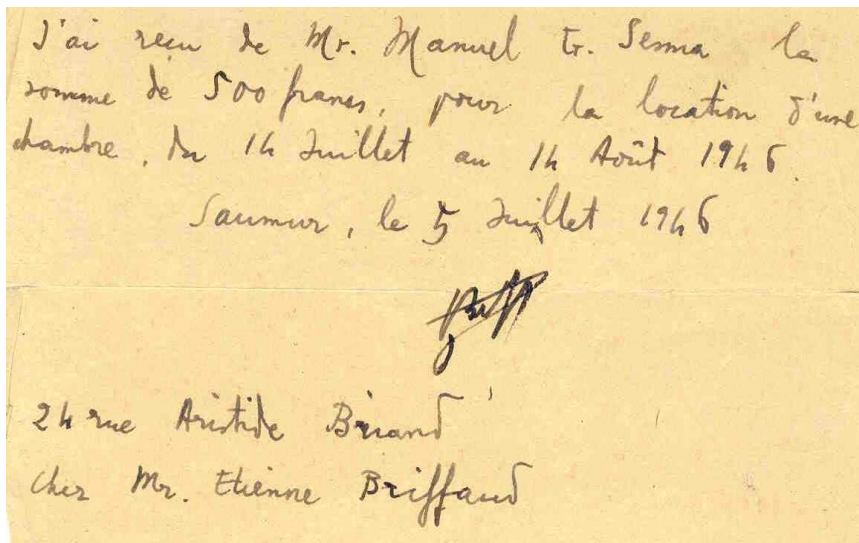 J'ai reçu de Mr. Manuel G. Senna la
somme de 500 francs, pour la location d'une
chambre, du 14 Juillet au 14 Août 1946.
Saumur, le 5 Juillet 1946
24 rue Aristide Briand
Chez Mr. Etienne Briffaud